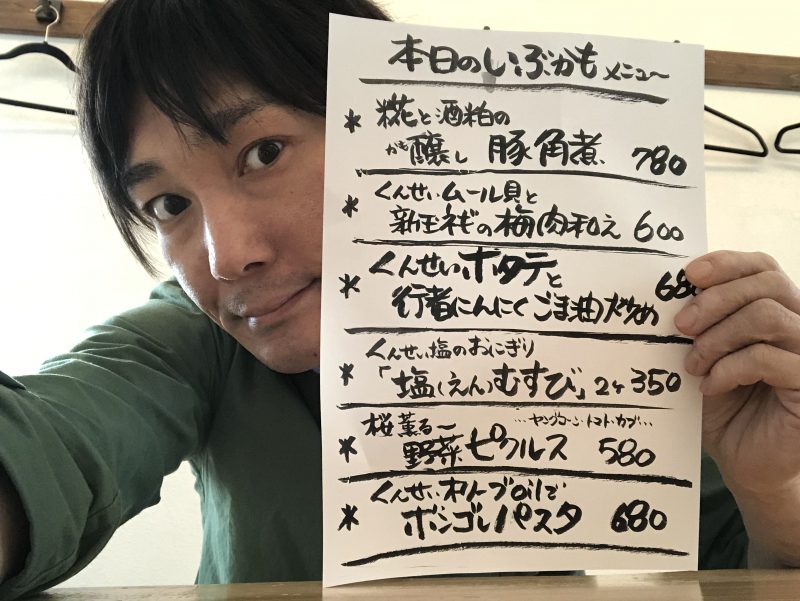 本日のいぶかもメニュ〜
* 糀と酒粕の
かも醸し 豚角煮 780
* くんせいムール貝と
新玉ネギの梅肉和え 600
* くんせいホタテと 680
行者にんにくごま油炒め
* くんせい塩のおにぎり
「塩(えん)むすび」2ケ 350
* 桜薫る〜 …ヤングコーン・トマト・カブ…
野菜ピクルス 580
* くんせいオリーブoilで
ボンゴレパスタ 680